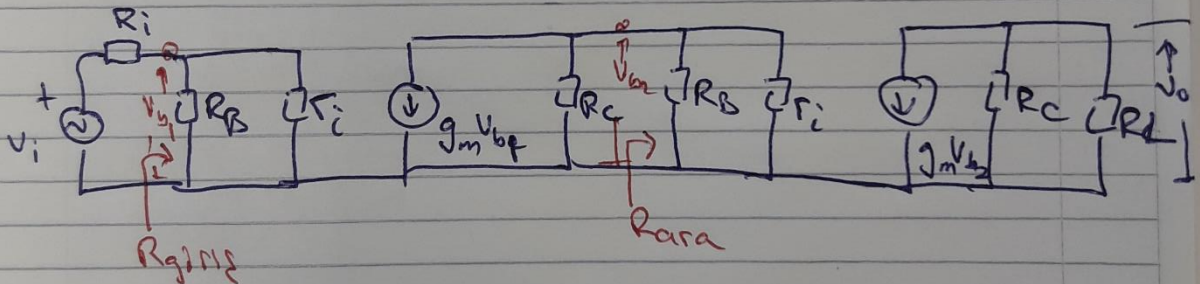 Ri
+
Vi
Vb1
RB
ri
gmVb1
RC
Vb2
RB
ri
gmVb2
RC
RL
Vo
Rgiriş
Rara